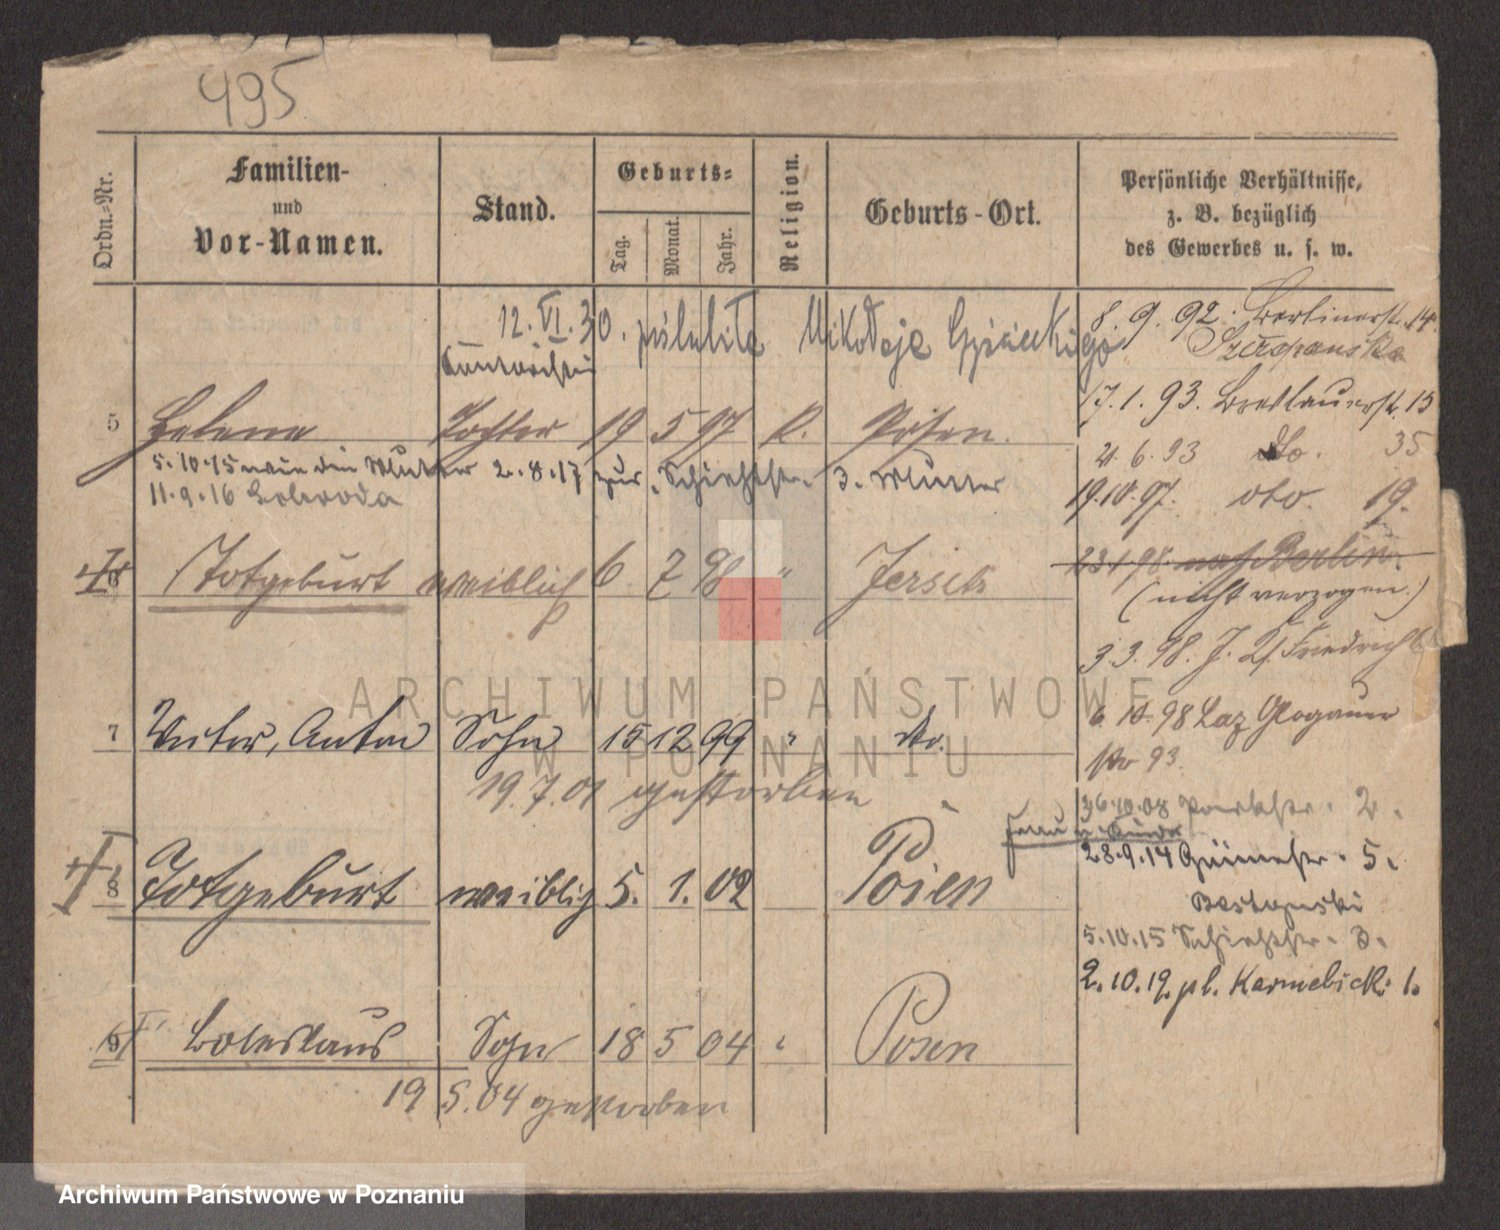 495
Ordn.-Nr.
Familien-
und
Vor-Namen.
Stand.
Geburts-
Tag.
Monat.
Jahr.
Religion.
Geburts-Ort.
Persönliche Verhältnisse,
z. B. bezüglich
des Gewerbes u. s. w.
12. VI. 30. poślubiła Mikołaja
5 Helene Tochter 19 5 97 K. Posen.
5.10.15 wie die Mutter 2.8.17 zur Schießstr. 3. Mutter
11.9.16
6 Totgeburt weiblich 6 7 98 " Jersitz
7 Victor, Anton Sohn 15 12 99 " dto.
19.7.01 gestorben
8 Totgeburt weiblich 5. 1. 02 Posen
9 Boleslaus Sohn 18 5 04 " Posen
19 5.04 gestorben
8. 9. 92. Berlinerstr. 14.
Szczepanska
17. 1. 93. Breslauerstr. 15
21. 6. 93 dto. 35
19.10.97. dto. 19.
23 1 98 nach Berlin.
(nicht verzogen.)
3. 3. 98. J. Friedrich
6 10. 98 Laz Glogauer
Str 93.
26.10.08 Parkstr. 2.
Frau u. Kinder
28.9.14 5.
5.10.15 Schießstr. 3.
2.10.19. pl. 1.
ARCHIWUM PAŃSTWOWE
W POZNANIU
Archiwum Państwowe w Poznaniu